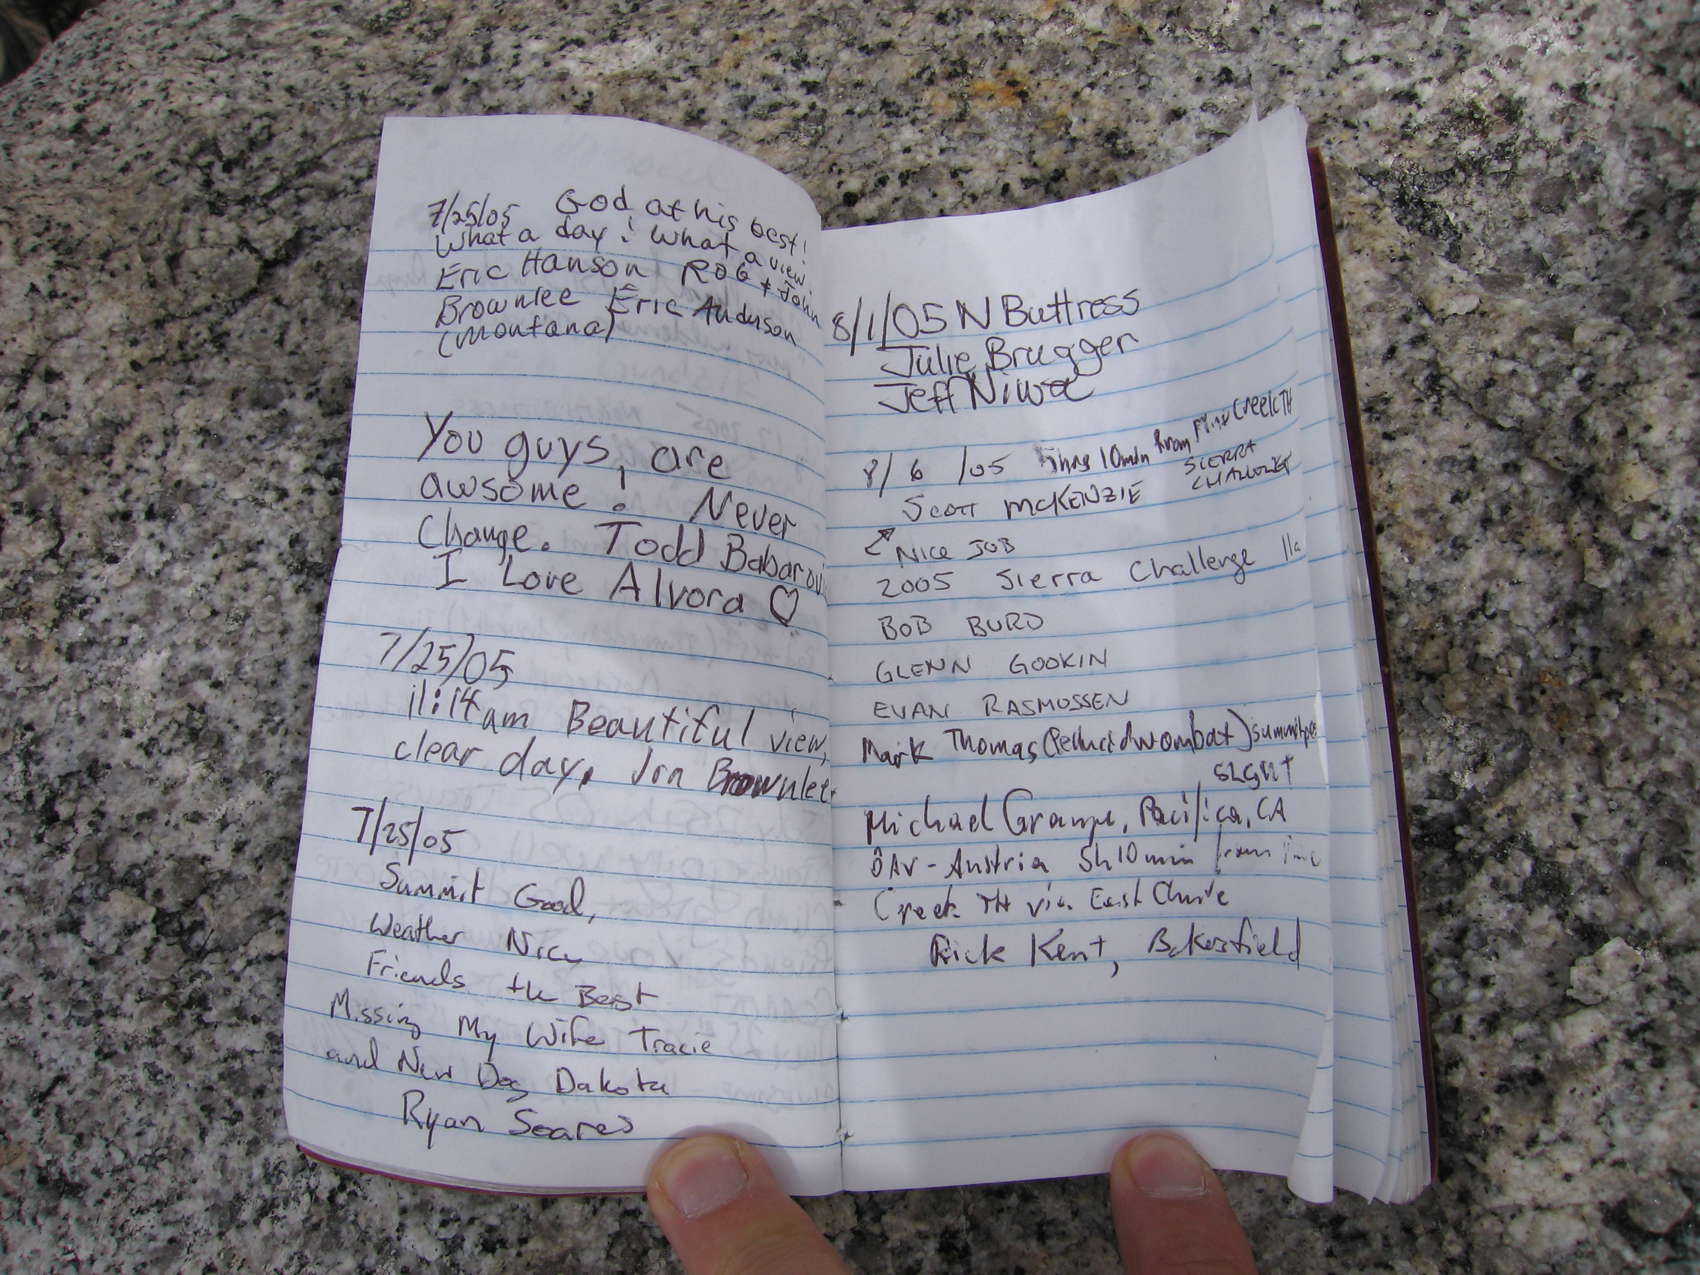 7/25/05 God at his best!
What a day! What a view
Eric Hanson ROG + John
Brownlee Eric Anderson
(Montana)
You guys, are
awsome! Never
Change. Todd Babarovi
I Love Alvora ♡
7/25/05
11:14am Beautiful view,
clear day, Jon Brownlee
7/25/05
Summit Good,
Weather Nice
Friends the Best
Missing My Wife Tracie
and New Dog Dakota
Ryan Soares
8/1/05 N Buttress
Julie Brugger
Jeff Niwa
8/6/05 5hrs 10min from Pine Creek TH
Scott McKENZIE SIERRA CHALLENGE
↗ NICE JOB
2005 Sierra Challenge 11a
BOB BURD
GLENN GOOKIN
EVAN RASMUSSEN
Mark Thomas (Pellucidwombat) summitpost
Michael Graupe, Pacifica, CA
ÖAV - Austria 5h10min from Pine
Creek TH via East Chute
Rick Kent, Bakersfield